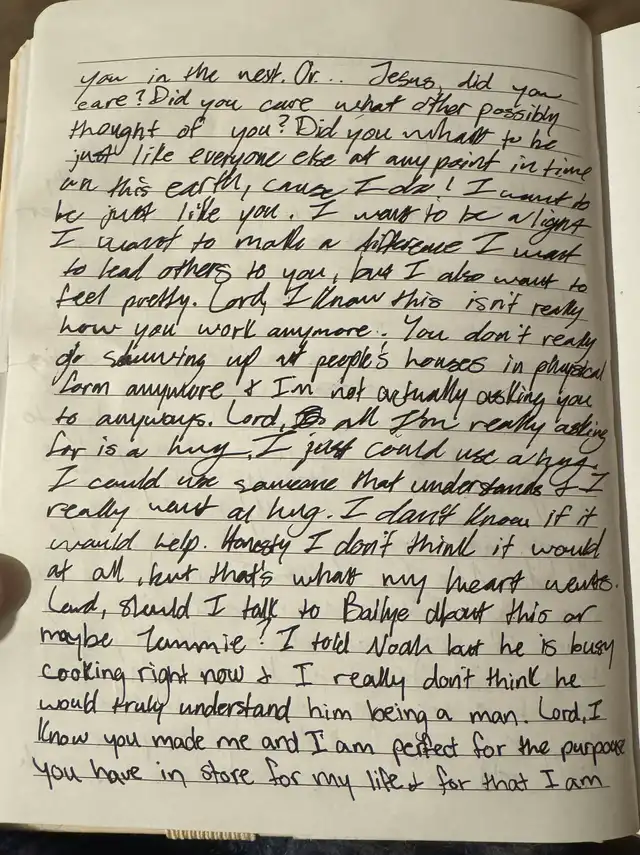 you in the nest. Or... Jesus, did you
care? Did you care what other possibly
thought of you? Did you whant to be
just like everyone else at any point in time
on this earth, cause I do! I want to
be just like you. I want to be a light
I want to make a difference I want
to lead others to you, but I also want to
feel pretty. Lord, I know this isn't really
how you work anymore. You don't really
go showing up at people's houses in physical
form anymore & I'm not actually asking you
to anyways. Lord, all I'm really asking
for is a hug. I just could use a hug.
I could use someone that understands & I
really want a hug. I don't know if it
would help. Honestly I don't think it would
at all, but that's what my heart wants.
Lord, should I talk to Bailye about this or
maybe Tammie? I told Noah but he is busy
cooking right now & I really don't think he
would truly understand him being a man. Lord, I
know you made me and I am perfect for the purpouse
you have in store for my life & for that I am